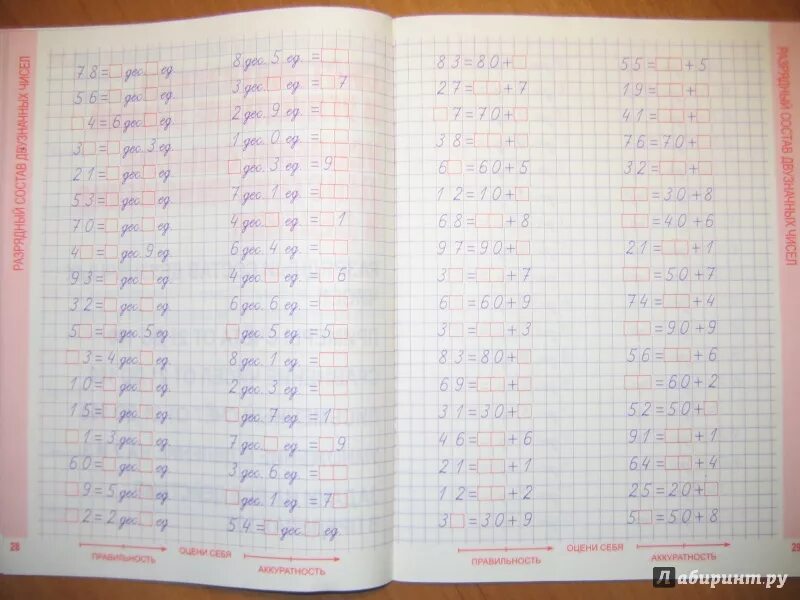 РАЗРЯДНЫЙ СОСТАВ ДВУЗНАЧНЫХ ЧИСЕЛ
78=□дес.□ед.
56=□дес.□ед.
□4=6дес.□ед.
3□=□дес.3ед.
21=□дес.□ед.
53=□дес.□ед.
70=□дес.□ед.
4□=□дес.9ед.
93=□дес.□ед.
32=□дес.□ед.
5□=□дес.5ед.
□3=4дес.□ед.
10=□дес.□ед.
15=□дес.□ед.
□1=3дес.□ед.
60=□дес.□ед.
□9=5дес.□ед.
□2=2дес.□ед.
8дес.5ед.=□□
3дес.□ед.=□7
2дес.9ед.=□□
1дес.0ед.=□□
□дес.3ед.=9□
7дес.1ед.=□□
4дес.□ед.=□1
6дес.4ед.=□□
4дес.□ед.=□6
6дес.6ед.=□□
□дес.5ед.=5□
8дес.1ед.=□□
2дес.3ед.=□□
□дес.7ед.=1□
7дес.□ед.=□9
3дес.6ед.=□□
□дес.1ед.=7□
54=□дес.□ед.
28
ПРАВИЛЬНОСТЬ
ОЦЕНИ СЕБЯ
АККУРАТНОСТЬ
83=80+□
27=□□+7
□7=70+□
38=□□+□
6□=60+5
12=10+□
68=□□+8
97=90+□
3□=□□+7
6□=60+9
3□=□□+3
83=80+□
69=□□+□
31=30+□
46=□□+6
21=□□+1
12=□□+2
3□=30+9
55=□□+5
19=□□+□
41=□□+□
76=70+□
32=□□+□
□□=30+8
□□=40+6
21=□□+1
□□=50+7
74=□□+4
□□=90+9
56=□□+6
□□=60+2
52=50+□
91=□□+1
64=□□+4
25=20+□
5□=50+8
РАЗРЯДНЫЙ СОСТАВ ДВУЗНАЧНЫХ ЧИСЕЛ
ПРАВИЛЬНОСТЬ
ОЦЕНИ СЕБЯ
АККУРАТНОСТЬ
29
Лабиринт.ру